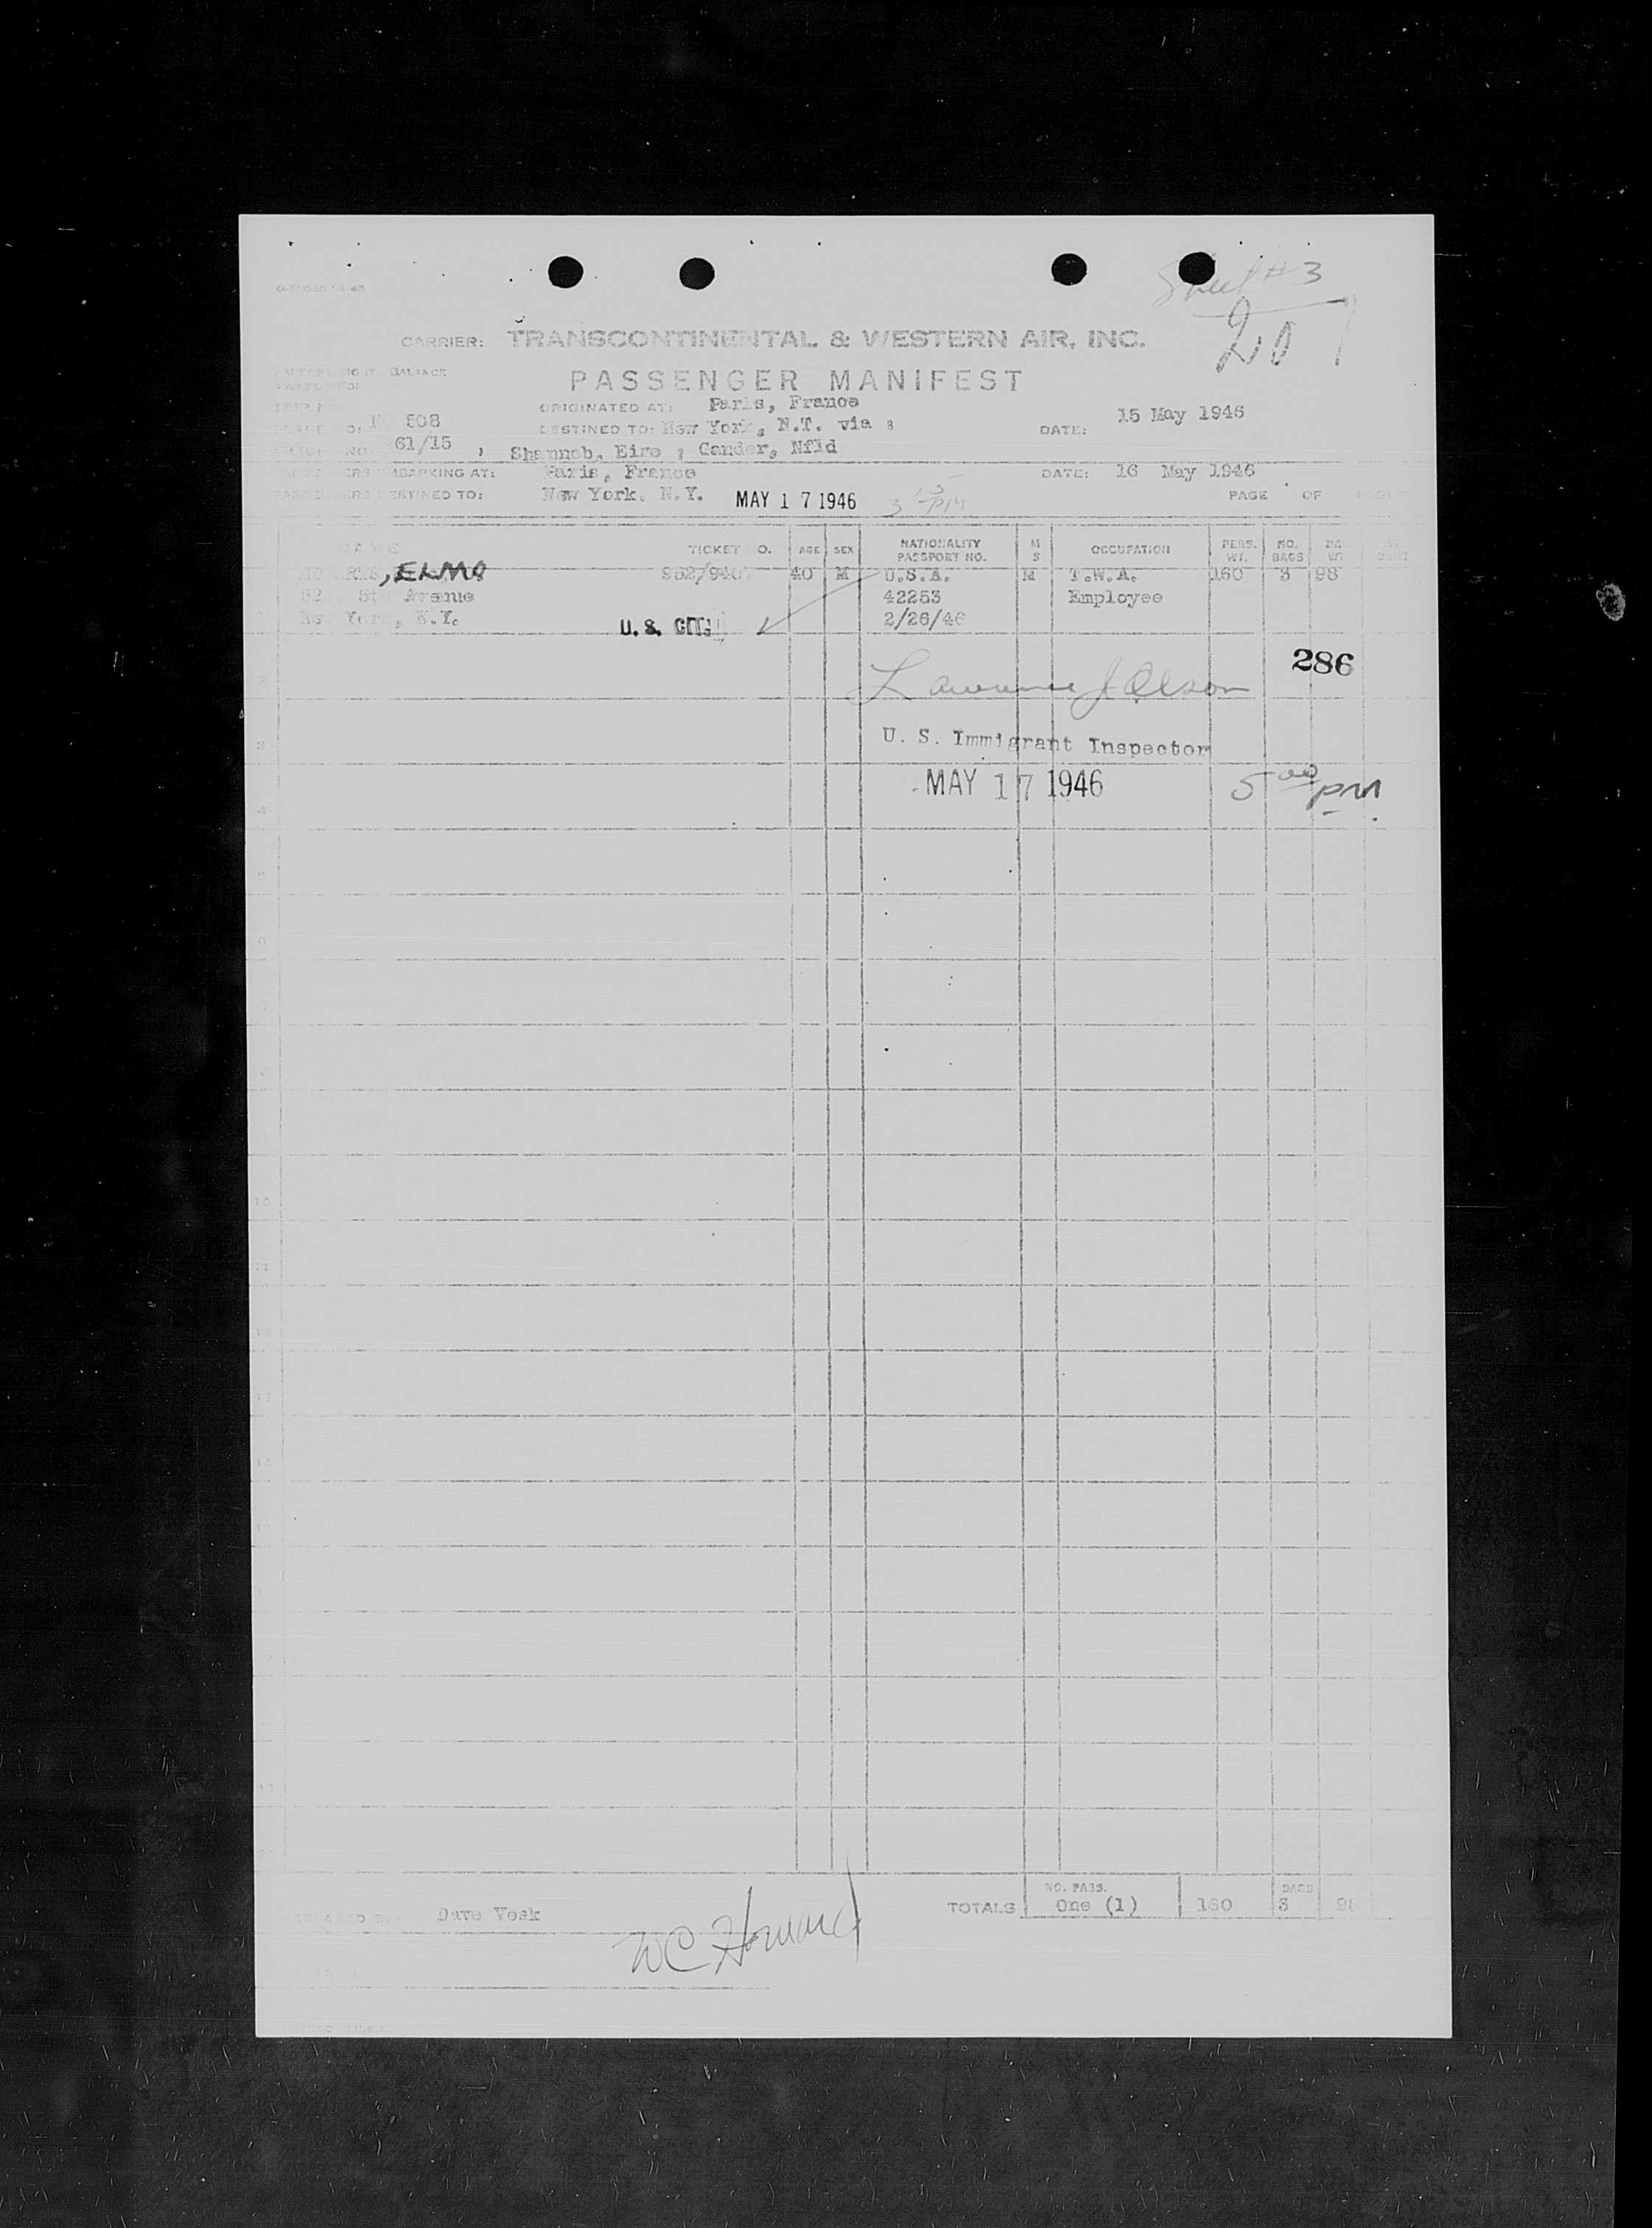 Sheet #3
CARRIER: TRANSCONTINENTAL & WESTERN AIR, INC.
BALANCE
PASSENGER MANIFEST
ORIGINATED AT: Paris, France
15 May 1946
NO: 508
DESTINED TO: New York, N.T. via :
DATE:
NO. 61/15 ,
Shannob, Eire ; Gander, Nfld
EMBARKING AT: Paris, France
DATE: 16 May 1946
DESTINED TO: New York, N.Y. MAY 17 1946
PAGE OF
NAME TICKET NO. AGE SEX NATIONALITY PASSPORT NO. M S OCCUPATION PERS. WT. NO. BAGS
, ELMO 40 M U.S.A. M T.W.A. 160 3 98
Avenue 42253 Employee
New York, N.Y. 2/26/46
U. S. CIT.
286
Lawrence J Olson
U. S. Immigrant Inspector
MAY 17 1946
5 00 PM
NO. PASS. BAGS
Dave Vesk
TOTALS One (1) 160 3
WC Howard